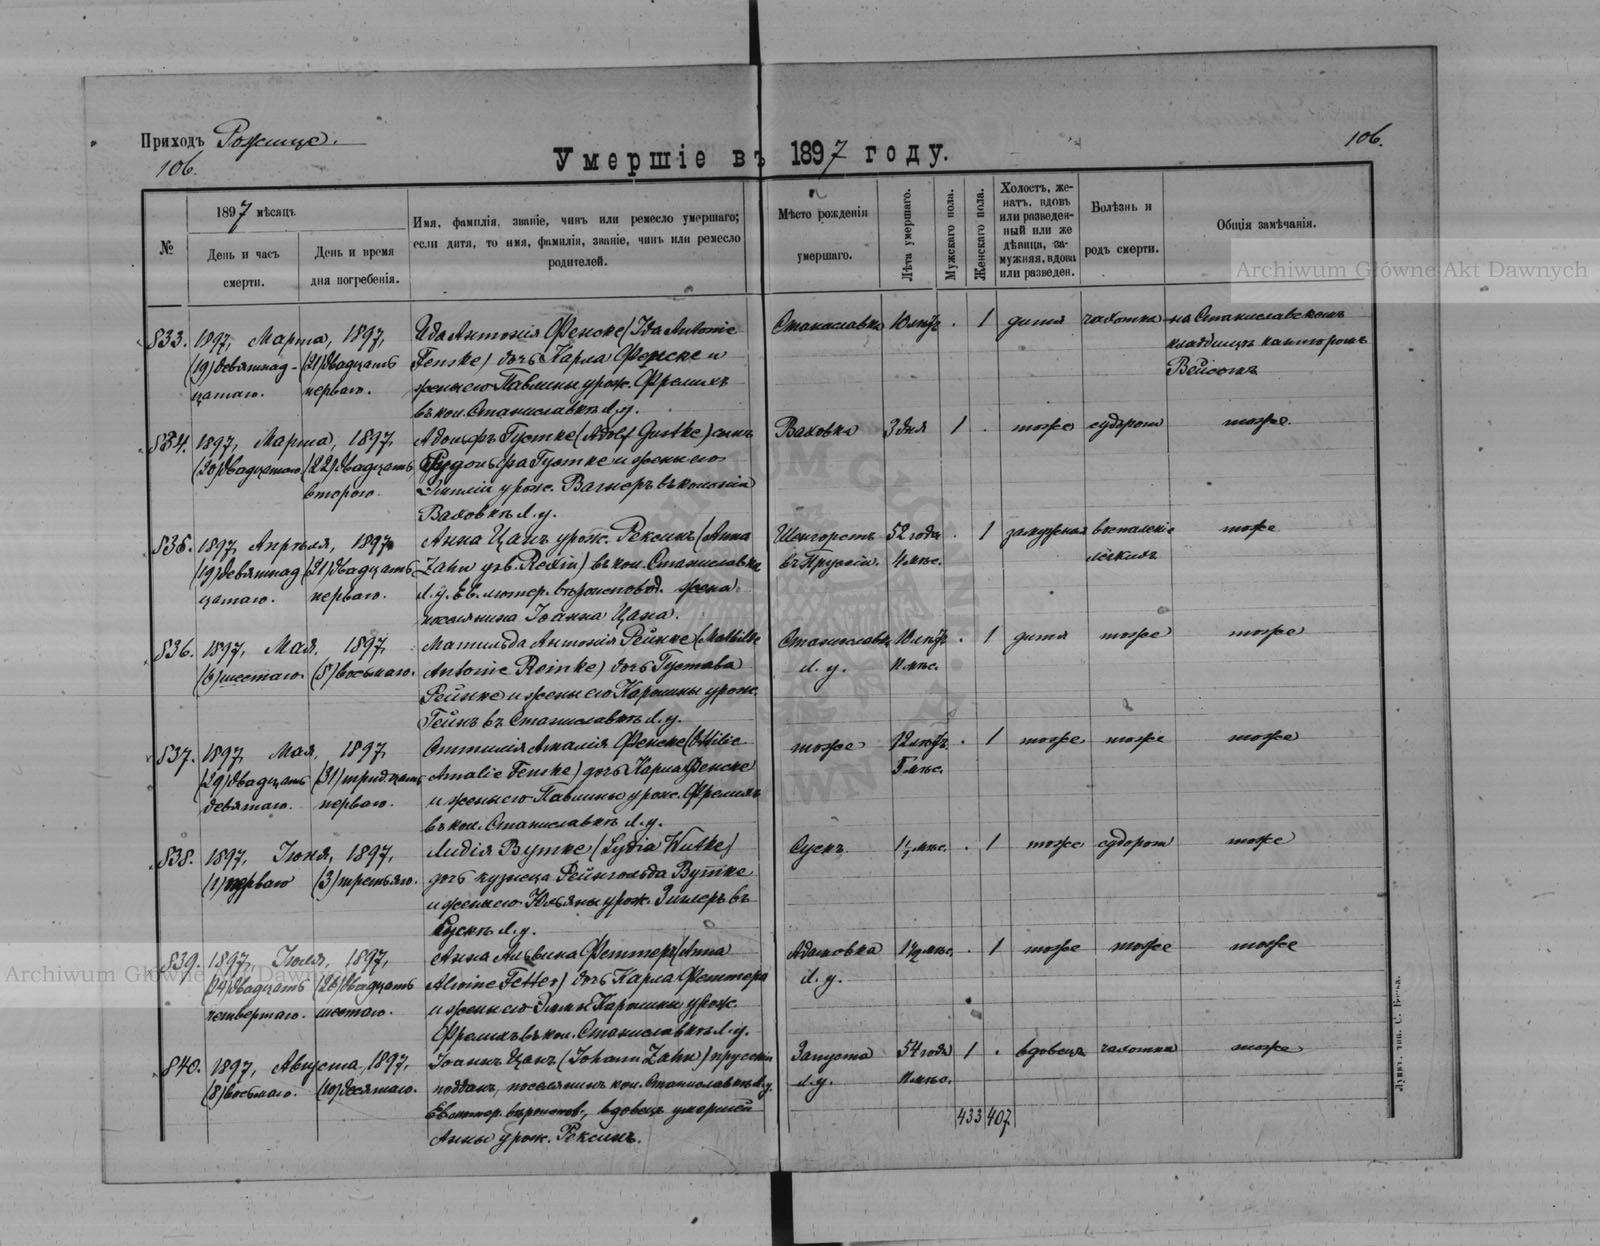 Приходъ Рожище.
106.
Умершіе въ 1897 году.
106.
№
1897 мѣсяцъ
День и часъ смерти.
День и время дня погребенія.
Имя, фамилія, званіе, чинъ или ремесло умершаго;
если дитя, то имя, фамилія, званіе, чинъ или ремесло
родителей.
Мѣсто рожденія
умершаго.
Лѣта умершаго.
Мужскаго пола.
Женскаго пола.
Холостъ, же-
натъ, вдовъ
или разведен-
ный или же
дѣвица, за-
мужняя, вдова
или разведен.
Болѣзнь и
родъ смерти.
Общія замѣчанія.
833. 1897, Марта, 1897, Ида Антонія Фенске (Ida Antonie Станославка 10 лѣтъ . 1 дитя чахотка на Станиславскомъ
(19) девятнад- (21) двадцать Fenske) дочь Карла Фенске и кладбищѣ канторомъ
цатаго. перваго. жены его Павлины урож. Фрелихъ
въ кол. Станиславкѣ Л. у.
834. 1897, Марта, 1897, Адольфъ Густке (Adolf Gustke) сынъ Ваховка 3 дня 1 . тоже судорог тоже
(20) двадцатаго (22) двадцать Рудольфа Густке и жены его
второго. Эмиліи урож. Вагнеръ въ колоніи
Ваховкѣ Л. у.
835. 1897, Апрѣля, 1897, Анна Цанъ урож. Рексинъ (Anna 52 года . 1 замужняя воспаленіе тоже
(19) девятнад (21) двадцать Zahn geb. Rexin) въ кол. Станиславка въ Пруссіи. 4 мѣс. легкихъ
цатаго. перваго. Л. у. Ев. лютер. вѣроисповѣд. жена
поселянина Іоанна Цана.
836. 1897, Мая, 1897, Матильда Антонія Рейнке (Mathilde Станиславка 10 лѣтъ . 1 дитя тоже тоже
(6) шестаго. (8) восьмаго. Antonie Reinke) дочь Густава Л. у. 11 мѣс.
Рейнке и жены его Каролины урож.
Гейнъ въ Станиславкѣ Л. у.
837. 1897, Мая, 1897, Оттилія Амалія Фенске (Ottilie тоже 12 лѣтъ . 1 тоже тоже тоже
(29) двадцать (31) тридцать Amalie Fenske) дочь Карла Фенске 5 мѣс.
девятаго. перваго. и жены его Павлины урож. Фрелихъ
въ кол. Станиславкѣ Л. у.
838. 1897, Іюня, 1897, Лидія Вутке (Lydia Wutke) Сускъ . 1 тоже судорог тоже
(1) перваго (3) третьяго. дочь кузнеца Рейнгольда Вутке
и жены его Юльяны урож. Зиглеръ въ
Сускѣ Л. у.
839. 1897, Іюля, 1897, Анна Альвина Феттеръ (Anna Адамовка . 1 тоже тоже тоже
(24) двадцать (26) двадцать Alwine Fetter) дочь Карла Феттера Л. у.
четвертаго. шестаго. и жены его Эммы Каролины урож.
Фрелихъ въ кол. Станиславкѣ Л. у.
840. 1897, Августа, 1897, Іоаннъ Цанъ (Johann Zahn) прусскій Запуста 54 года 1 . вдовецъ чахотка тоже
(8) восьмаго. (10) десятаго. поддан., поселянинъ кол. Станиславкѣ Л. у. Л. у. 11 мѣс.
Ев. лютер. вѣроиспов., вдовецъ умершей
Анны урож. Рексинъ.
433 407
Archiwum Główne Akt Dawnych
Archiwum Główne Akt Dawnych